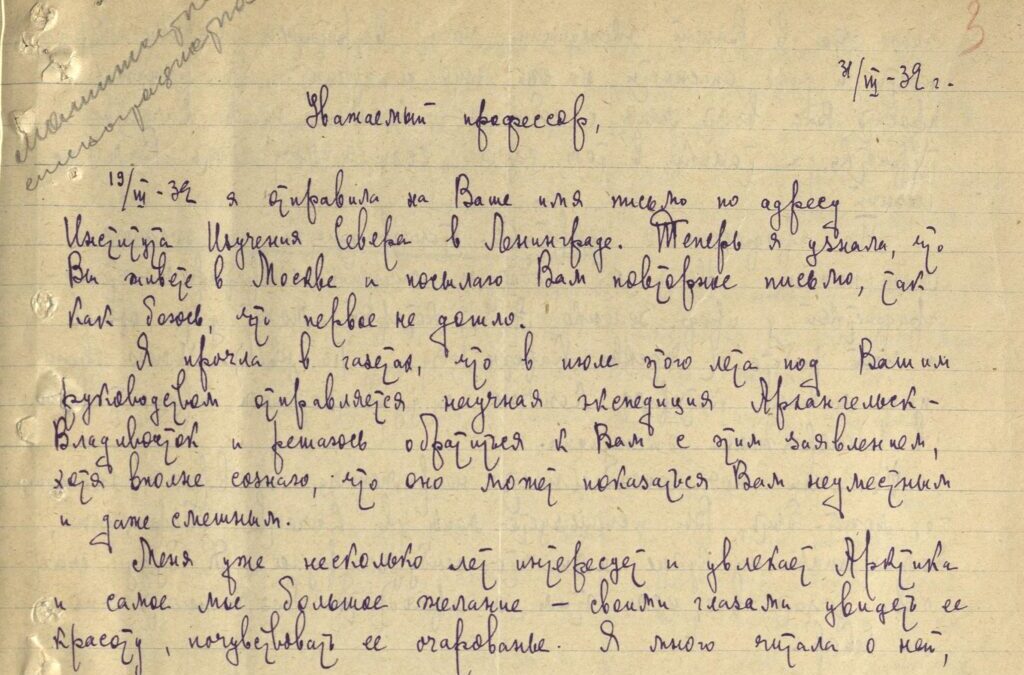 3
Машинистка
стенографистка
31/III-32 г.
Уважаемый профессор,
19/III-32 я отправила на Ваше имя письмо по адресу
Института Изучения Севера в Ленинграде. Теперь я узнала, что
Вы живете в Москве и посылаю Вам повторное письмо, так
как боюсь, что первое не дошло.
Я прочла в газетах, что в июле этого лета под Вашим
руководством отправляется научная экспедиция Архангельск-
Владивосток и решаюсь обратиться к Вам с этим заявлением,
хотя вполне сознаю, что оно может показаться Вам неуместным
и даже смешным.
Меня уже несколько лет интересует и увлекает Арктика
и самое мое большое желание – своими глазами увидеть ее
красоту, почувствовать ее очарованье. Я много читала о ней,